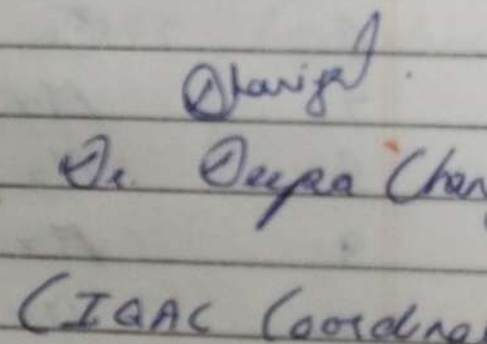 Dr. Deepa Chan
(IQAC Coordina